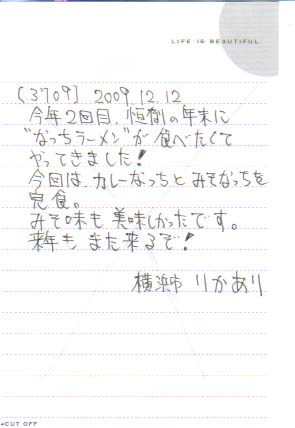 LIFE IS BEAUTIFUL
[3709] 2009.12.12
今年2回目、恒例の年末に
"なっちラーメン"が食べたくて
やってきました!
今回は、カレーなっちとみそなっちを
完食。
みそ味も美味しかったです。
来年も また来るで!
横浜市 りかあり
CUT OFF